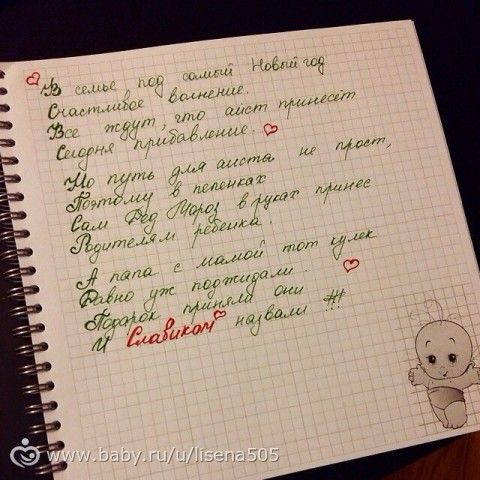 В семье под самый Новый год
Счастливое волнение.
Все ждут, что аист принесёт
Сегодня прибавление.
Но путь для аиста не прост,
Поэтому в пеленках
Сам Дед Мороз в руках принес
Родителям ребенка.
А папа с мамой тот кулек
Давно уж поджидали.
Подарок приняли они
И Славиком назвали !!!
www.baby.ru/u/lisena505